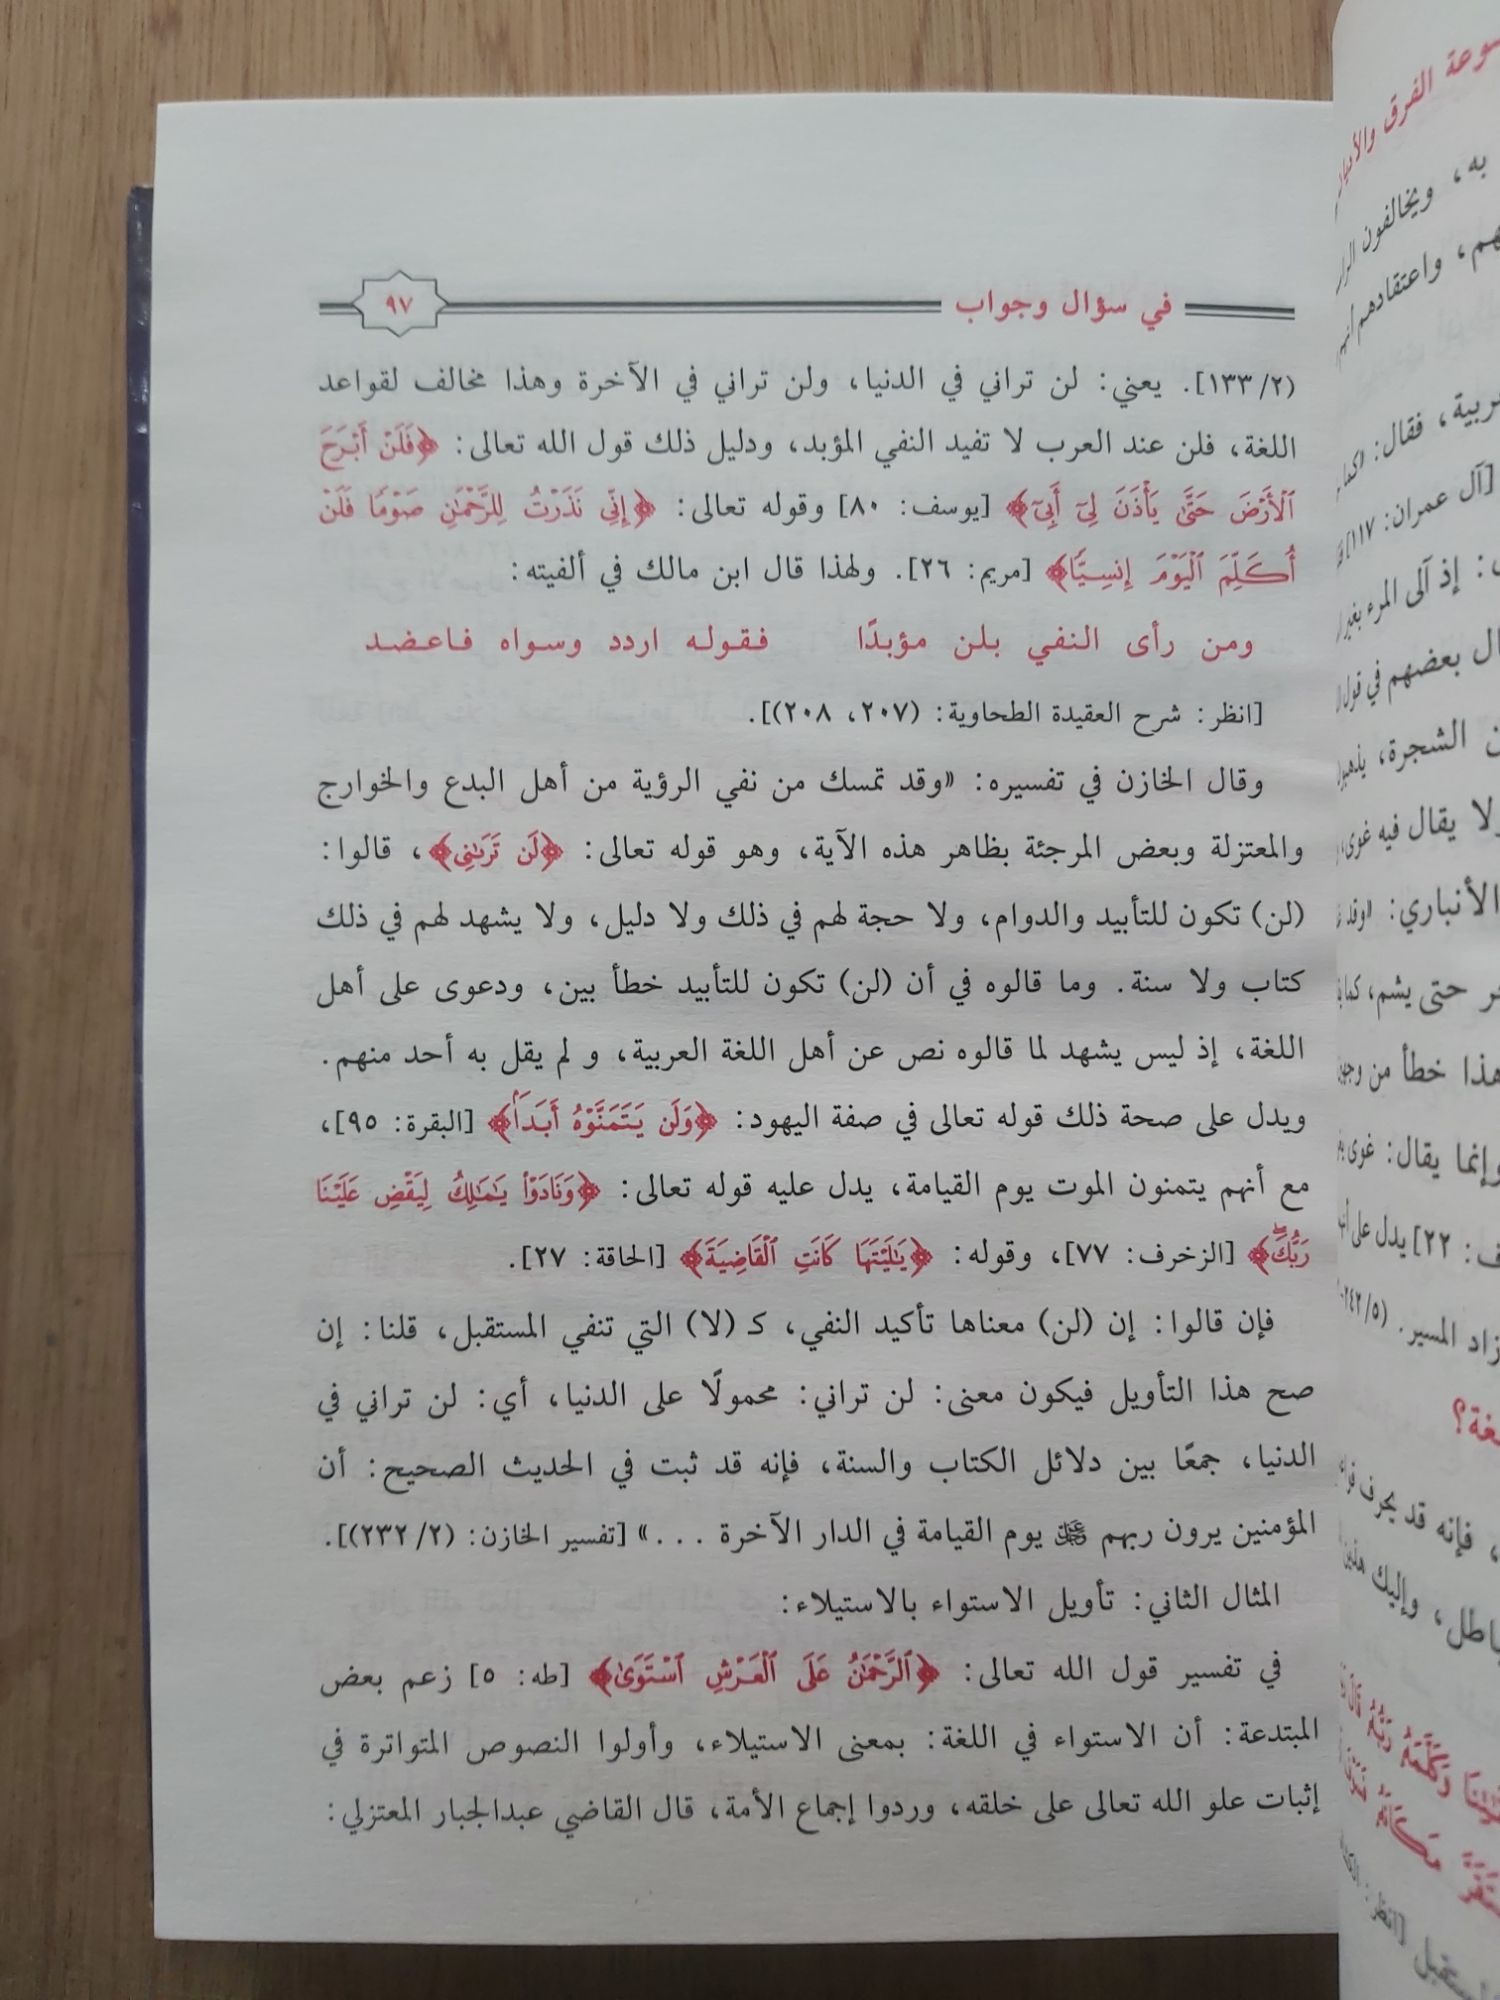 في سؤال وجواب
٩٧
(١٣٣/٢)]. يعني: لن تراني في الدنيا، ولن تراني في الآخرة وهذا مخالف لقواعد
اللغة، فلن عند العرب لا تفيد النفي المؤبد، ودليل ذلك قول الله تعالى: ﴿فَلَنْ أَبْرَحَ
ٱلْأَرْضَ حَتَّىٰ يَأْذَنَ لِىٓ أَبِىٓ﴾ [يوسف: ٨٠] وقوله تعالى: ﴿إِنِّى نَذَرْتُ لِلرَّحْمَٰنِ صَوْمًا فَلَنْ
أُكَلِّمَ ٱلْيَوْمَ إِنسِيًّا﴾ [مريم: ٢٦]. ولهذا قال ابن مالك في ألفيته:
ومن رأى النفي بلن مؤبدًا فقوله اردد وسواه فاعضد
[انظر: شرح العقيدة الطحاوية: (٢٠٧، ٢٠٨)].
وقال الخازن في تفسيره: «وقد تمسك من نفي الرؤية من أهل البدع والخوارج
والمعتزلة وبعض المرجئة بظاهر هذه الآية، وهو قوله تعالى: ﴿لَن تَرَىٰنِى﴾، قالوا:
(لن) تكون للتأبيد والدوام، ولا حجة لهم في ذلك ولا دليل، ولا يشهد لهم في ذلك
كتاب ولا سنة. وما قالوه في أن (لن) تكون للتأبيد خطأ بين، ودعوى على أهل
اللغة، إذ ليس يشهد لما قالوه نص عن أهل اللغة العربية، و لم يقل به أحد منهم.
ويدل على صحة ذلك قوله تعالى في صفة اليهود: ﴿وَلَن يَتَمَنَّوْهُ أَبَدًۢا﴾ [البقرة: ٩٥]،
مع أنهم يتمنون الموت يوم القيامة، يدل عليه قوله تعالى: ﴿وَنَادَوْا۟ يَٰمَٰلِكُ لِيَقْضِ عَلَيْنَا
رَبُّكَ ۖ﴾ [الزخرف: ٧٧]، وقوله: ﴿يَٰلَيْتَهَا كَانَتِ ٱلْقَاضِيَةَ﴾ [الحاقة: ٢٧].
فإن قالوا: إن (لن) معناها تأكيد النفي، كـ (لا) التي تنفي المستقبل، قلنا: إن
صح هذا التأويل فيكون معنى: لن تراني: محمولًا على الدنيا، أي: لن تراني في
الدنيا، جمعًا بين دلائل الكتاب والسنة، فإنه قد ثبت في الحديث الصحيح: أن
المؤمنين يرون ربهم ﷿ يوم القيامة في الدار الآخرة ...» [تفسير الخازن: (٢٣٢/٢)].
المثال الثاني: تأويل الاستواء بالاستيلاء:
في تفسير قول الله تعالى: ﴿ٱلرَّحْمَٰنُ عَلَى ٱلْعَرْشِ ٱسْتَوَىٰ﴾ [طه: ٥] زعم بعض
المبتدعة: أن الاستواء في اللغة: بمعنى الاستيلاء، وأولوا النصوص المتواترة في
إثبات علو الله تعالى على خلقه، وردوا إجماع الأمة، قال القاضي عبدالجبار المعتزلي:
الفرق
به، ويخالفون
واعتقادهم أنهم
فقال:
[آل عمران: ١١٧]
إذ آلى المرء بغير
بعضهم في قول
الشجرة،
ولا يقال فيه غوى،
الأنباري: «وقد
حتى يشم، كما
هذا خطأ من
وإنما يقال: غوى
٢٢] يدل على
زاد المسير. (٢٤٢/٥
فإنه قد يحرف
وإليك
[انظر: